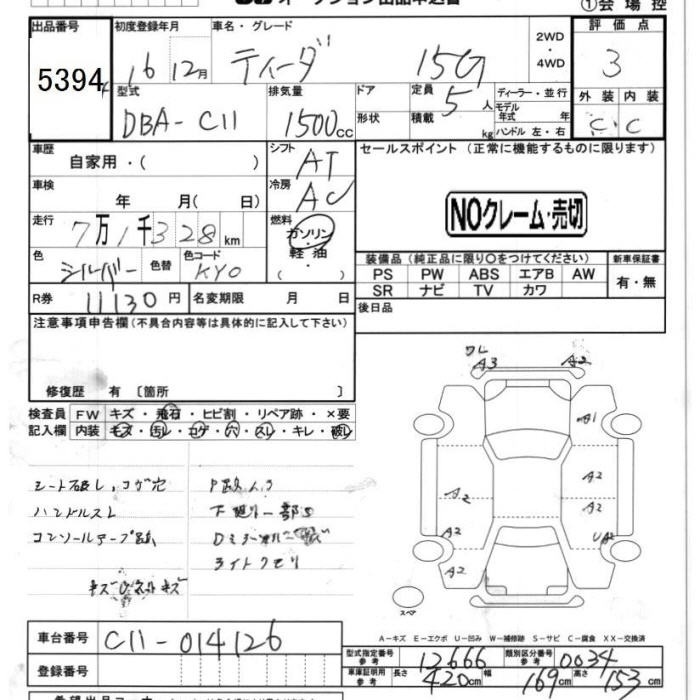 オークション出品申込書
①会場控
出品番号 5394
初度登録年月 16 12月
車名・グレード ティーダ 15G
2WD・4WD
評価点 3
型式 DBA-C11
排気量 1500cc
ドア 形状
定員 5人
積載 kg
ディーラー・並行
モデル年式 年式
ハンドル 左・右
外装 内装
C C
車歴 自家用・( )
シフト AT
セールスポイント (正常に機能するものに限ります)
車検 年 月( 日)
冷房 AC
NOクレーム・売切
走行 7万1千328km
燃料 ガソリン・軽油( ・ )
色 シルバー 色替 色コード KY0
装備品(純正品に限り○をつけてください)
新車保証書
PS PW ABS エアB AW
有・無
SR ナビ TV カワ
R券 11130円 名変期限 月 日
後日品
注意事項申告欄(不具合内容等は具体的に記入して下さい)
修復歴 有 〔箇所 〕
ワレ
A3 A2
検査員 FW キズ・飛石・ヒビ割・リペア跡・×要
記入欄 内装 キズ・汚レ・コゲ・穴・スレ・キレ・破レ
A1
A2
A2 A2
A2 UA2
A2
シート破レ、コゲ穴
ハンドルスレ
下廻り一部S
ライトクモリ
スペア
A-キズ E-エクボ U-凹み W-補修跡 S-サビ C-腐食 XX-交換済
車台番号 C11-014126
型式指定番号 参考 12666 類別区分番号 参考 0034
登録番号
車庫証明用 参考 長さ 420cm 幅 169cm 高さ 153cm